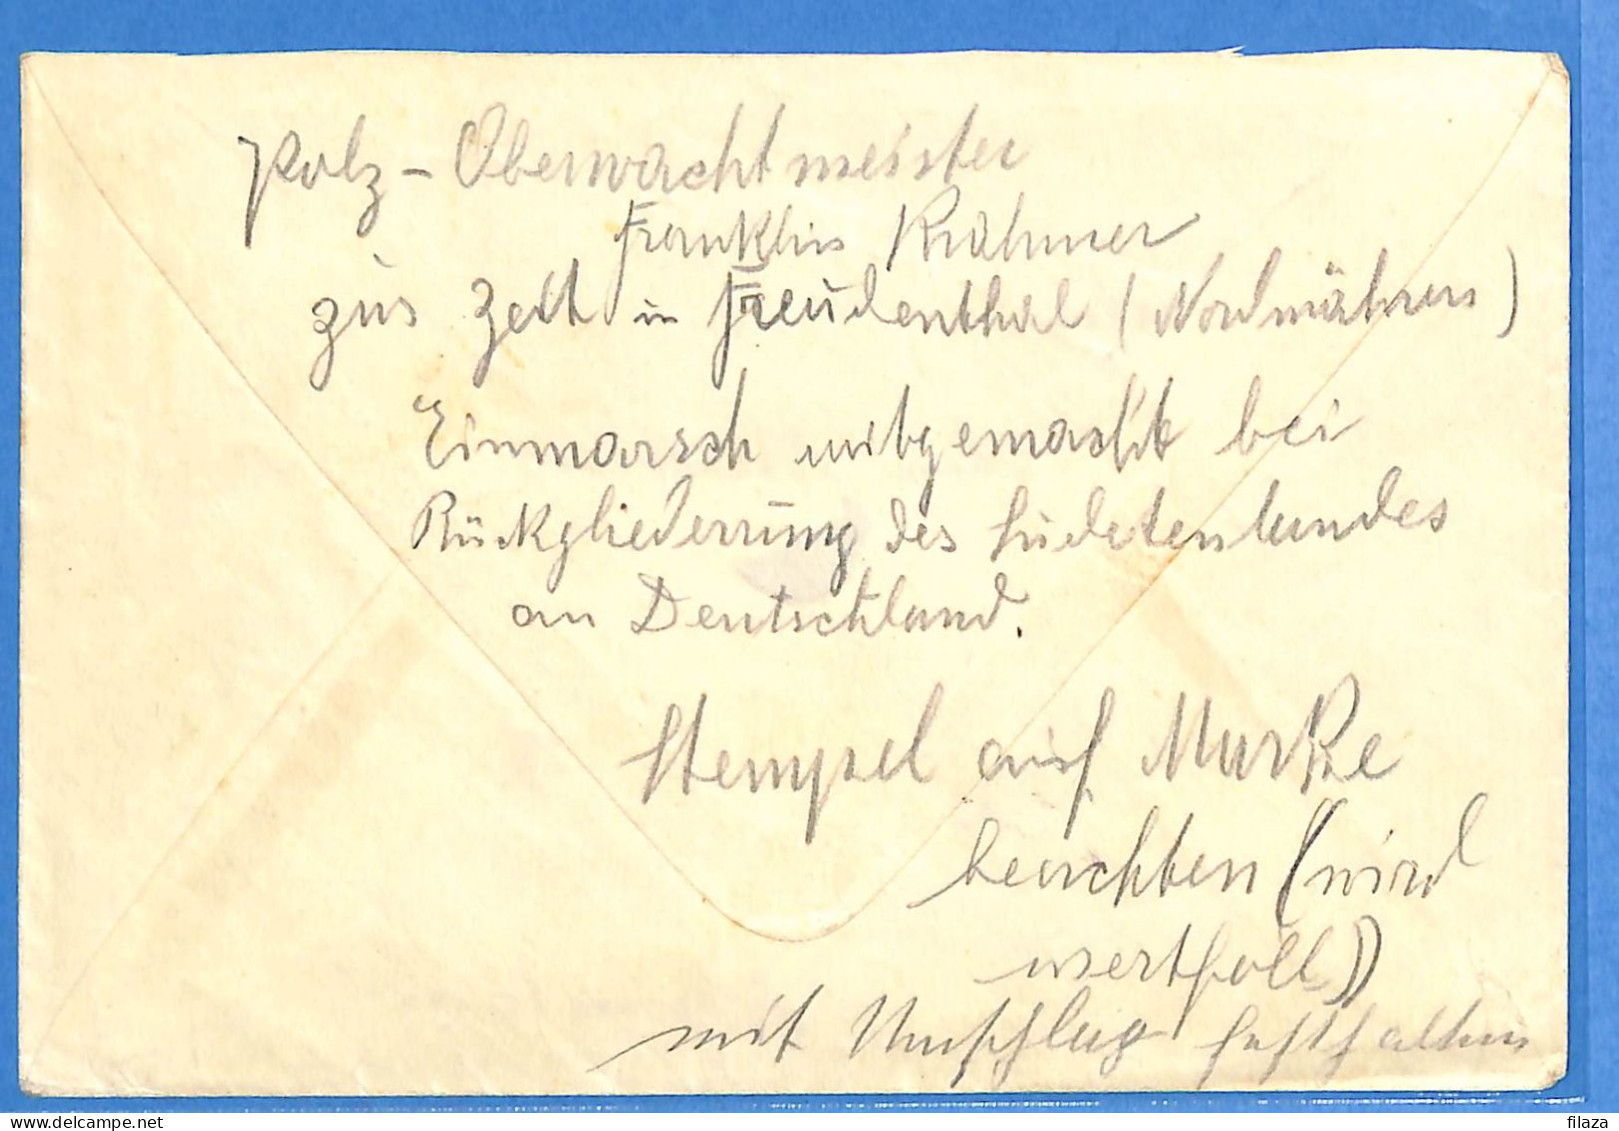 Polz - Oberwachtmeister
Franklin Krähmer
zur Zeit in Freudenthal (Nordmähren)
Einmarsch mitgemacht bei
Rückgliederung des Sudetenlandes
an Deutschland.
Stempel auf Marke
beachten (wird
wertfoll))
mit Umschlag
filaza